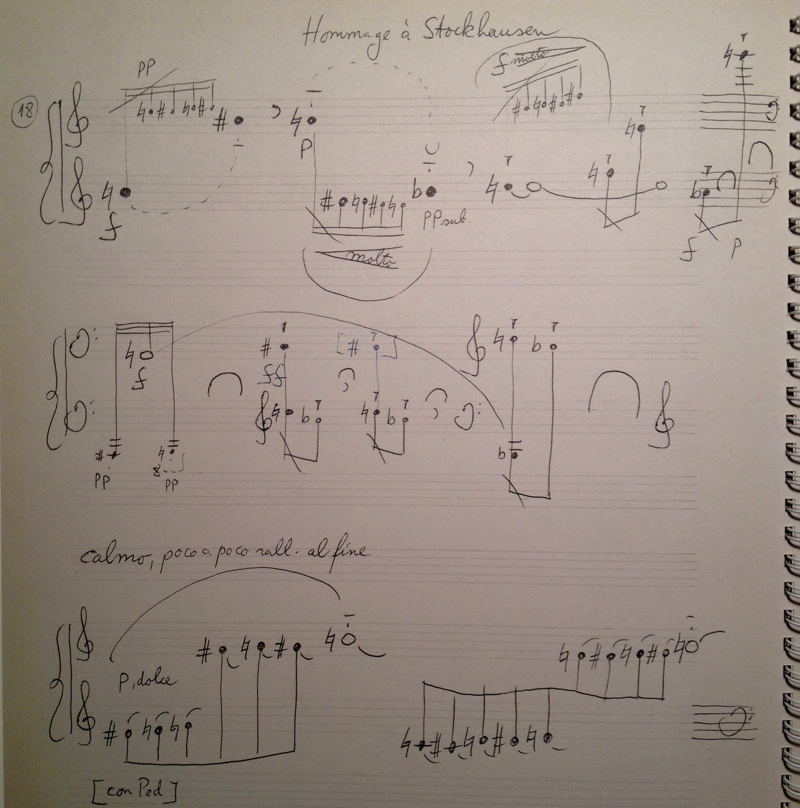 Hommage à Stockhausen
pp
f molto
18
p
f
pp sub.
molto
f
p
f
ff
pp
8
pp
calmo, poco a poco rall. al fine
p, dolce
[con Ped]